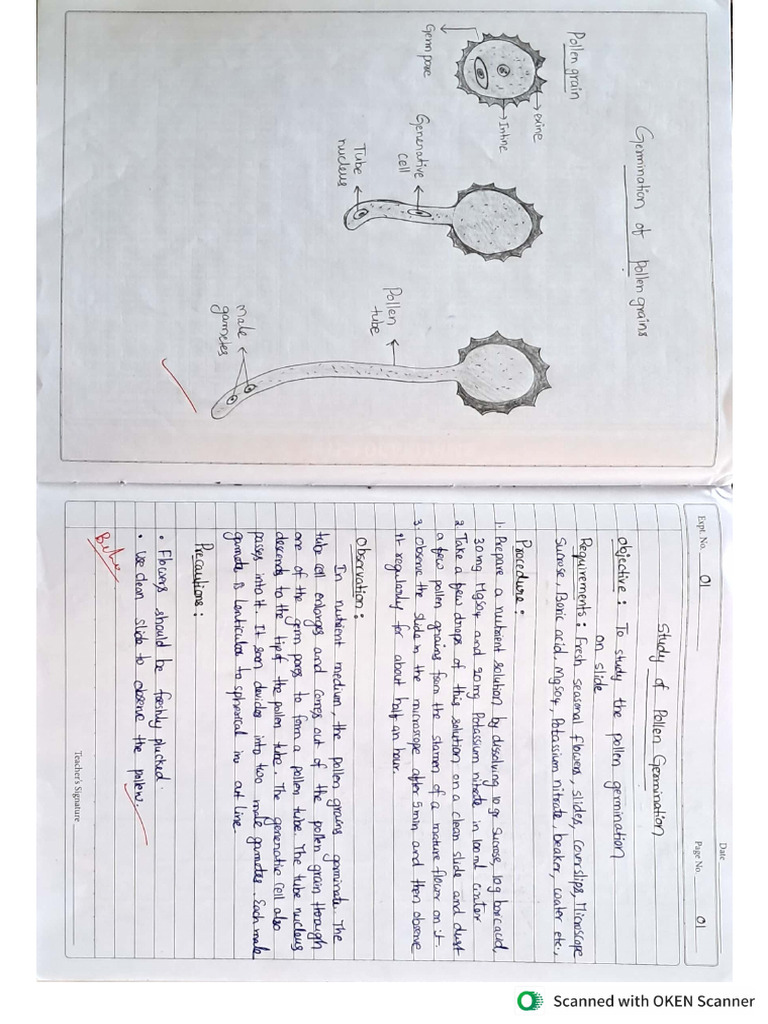 Germination of pollen grains
Pollen grain
exine
Intine
Germ pore
Generative
cell
Tube
nucleus
Pollen
tube
male
gametes
Date
Expt. No. 01
Page No. 01
Study of Pollen Germination
Objective : To study the pollen germination
on slide
Requirements : Fresh seasonal flowers, slides, coverslips, Microscope
Sucrose, Boric acid, MgSO4, Potassium nitrate, beaker, water etc.,
Procedure :
1. Prepare a nutrient solution by dissolving 10 gr sucrose, 10g boric acid,
30 mg MgSO4 and 20 mg Potassium nitrate in 100 ml water
2. Take a few drops of this solution on a clean slide and dust
a few pollen grains from the stamen of a mature flower on it.
3. Observe the slide in the microscope after 5 min and then observe
it regularly for about half an hour.
Observation :
In nutrient medium, the pollen grains germinate. The
tube cell enlarges and comes out of the pollen grain through
one of the germ pores to form a pollen tube. The tube nucleus
descends to the tip of the pollen tube. The generative cell also
passes into it. It soon devides into two male gametes. Each male
gamete is lenticular to spherical in out line.
Precautions :
• Flowers should be freshly plucked.
• We clean slide to observe the pollen.
Teacher's Signature
Scanned with OKEN Scanner